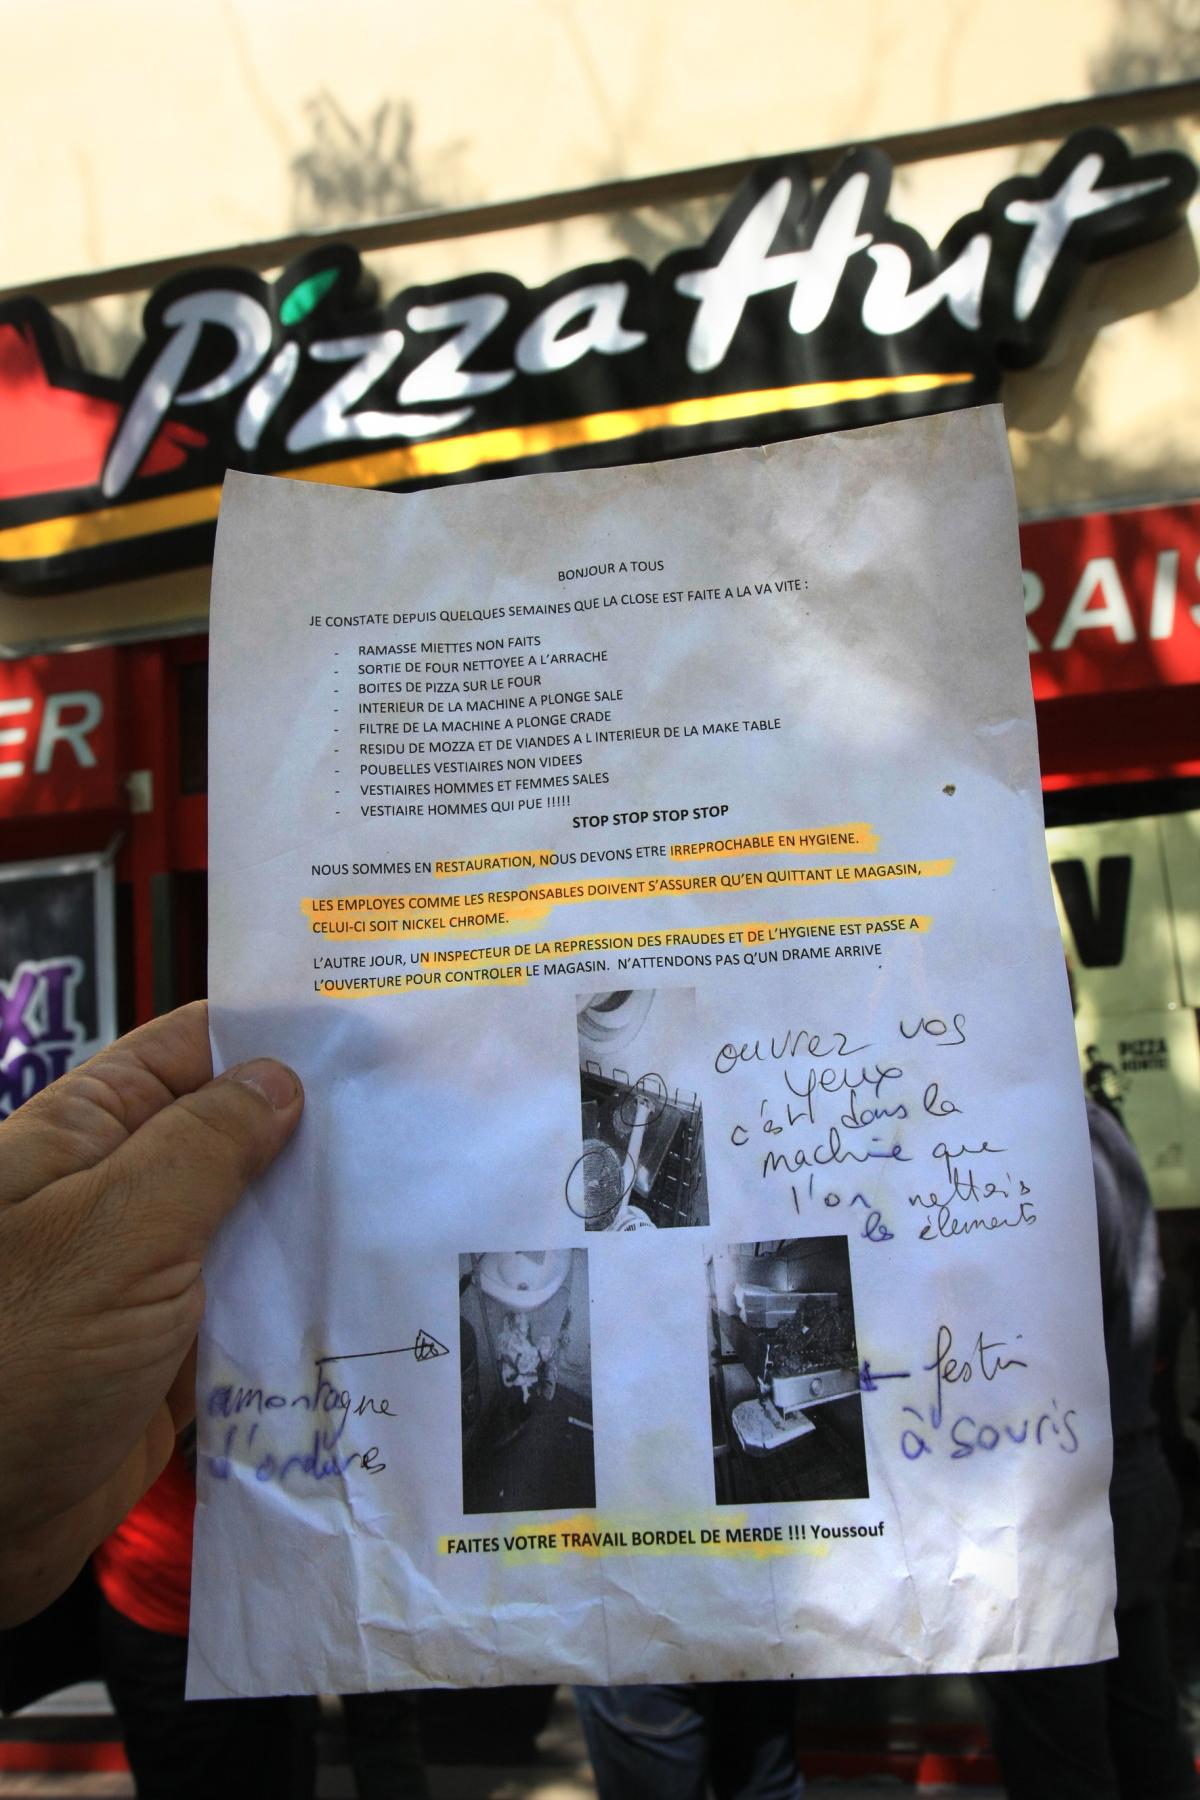 Pizza Hut
RAIS
ER
XI
V
PIZZA
BONJOUR A TOUS
JE CONSTATE DEPUIS QUELQUES SEMAINES QUE LA CLOSE EST FAITE A LA VA VITE :
- RAMASSE MIETTES NON FAITS
- SORTIE DE FOUR NETTOYEE A L'ARRACHE
- BOITES DE PIZZA SUR LE FOUR
- INTERIEUR DE LA MACHINE A PLONGE SALE
- FILTRE DE LA MACHINE A PLONGE CRADE
- RESIDU DE MOZZA ET DE VIANDES A L INTERIEUR DE LA MAKE TABLE
- POUBELLES VESTIAIRES NON VIDEES
- VESTIAIRES HOMMES ET FEMMES SALES
- VESTIAIRE HOMMES QUI PUE !!!!!
STOP STOP STOP STOP
NOUS SOMMES EN RESTAURATION, NOUS DEVONS ETRE IRREPROCHABLE EN HYGIENE.
LES EMPLOYES COMME LES RESPONSABLES DOIVENT S'ASSURER QU'EN QUITTANT LE MAGASIN,
CELUI-CI SOIT NICKEL CHROME.
L'AUTRE JOUR, UN INSPECTEUR DE LA REPRESSION DES FRAUDES ET DE L'HYGIENE EST PASSE A
L'OUVERTURE POUR CONTROLER LE MAGASIN. N'ATTENDONS PAS QU'UN DRAME ARRIVE
ouvrez vos
yeux
c'est dans la
machine que
l'on nettois
les élements
montagne
d'ordures
festin
à souris
FAITES VOTRE TRAVAIL BORDEL DE MERDE !!! Youssouf